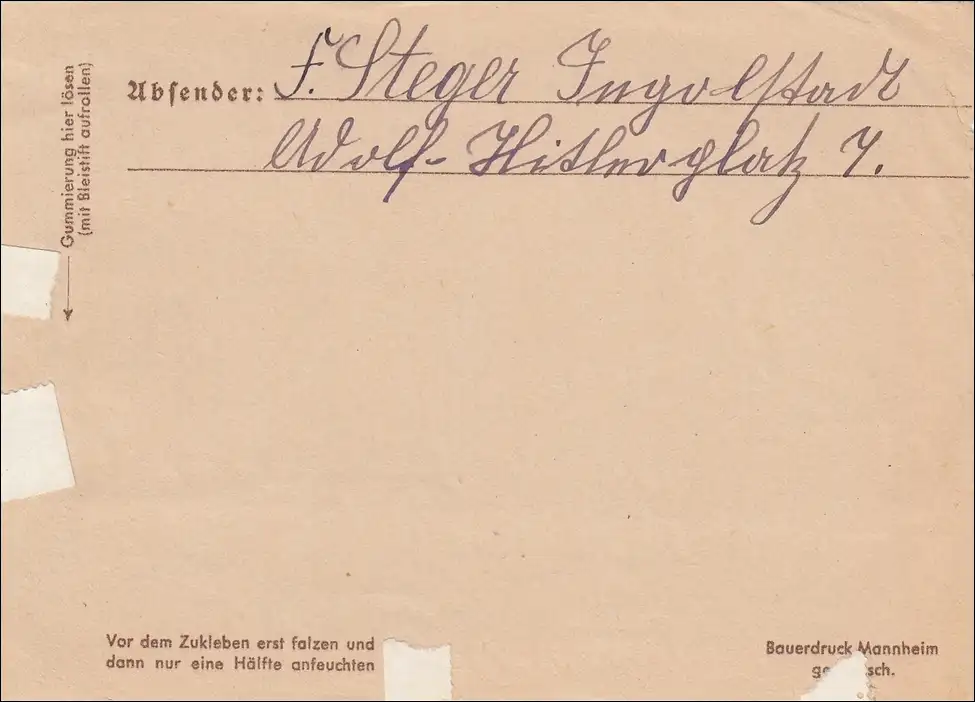 Gummierung hier lösen
(mit Bleistift aufrollen)
Absender: F. Steger Ingolstadt
Adolf-Hitlerplatz 7.
Vor dem Zukleben erst falzen und
dann nur eine Hälfte anfeuchten
Bauerdruck Mannheim
ge sch.